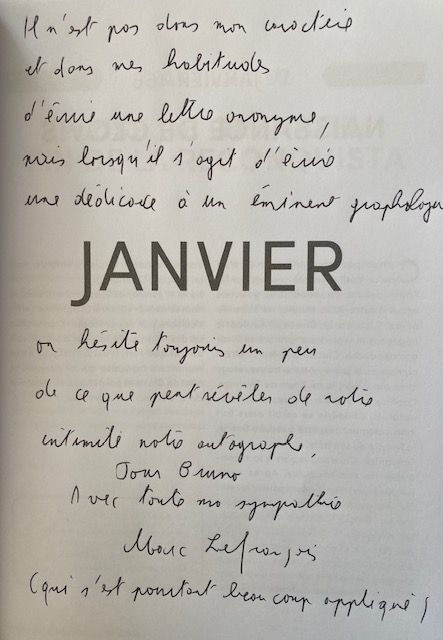 Il n'est pas dans mon caractère
et dans mes habitudes
d'écrire une lettre anonyme,
mais lorsqu'il s'agit d'écrire
une dédicace à un éminent graphologue
JANVIER
on hésite toujours un peu
de ce que peut révéler de notre
intimité notre autographe,
Pour Bruno
Avec toute ma sympathie
Marc Lefrançois
(qui s'est pourtant beaucoup appliqué)